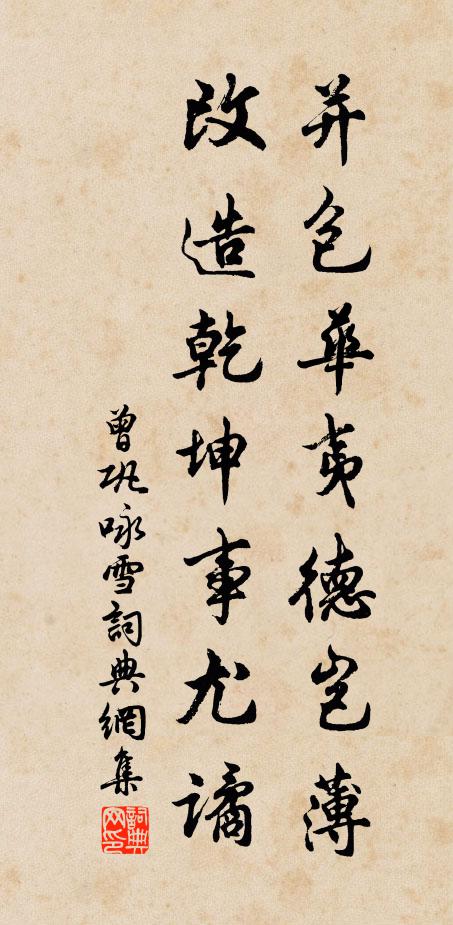 并包華夷德豈薄
改造乾坤事尤譎
曾巩咏雪詞典網集
詞典网印